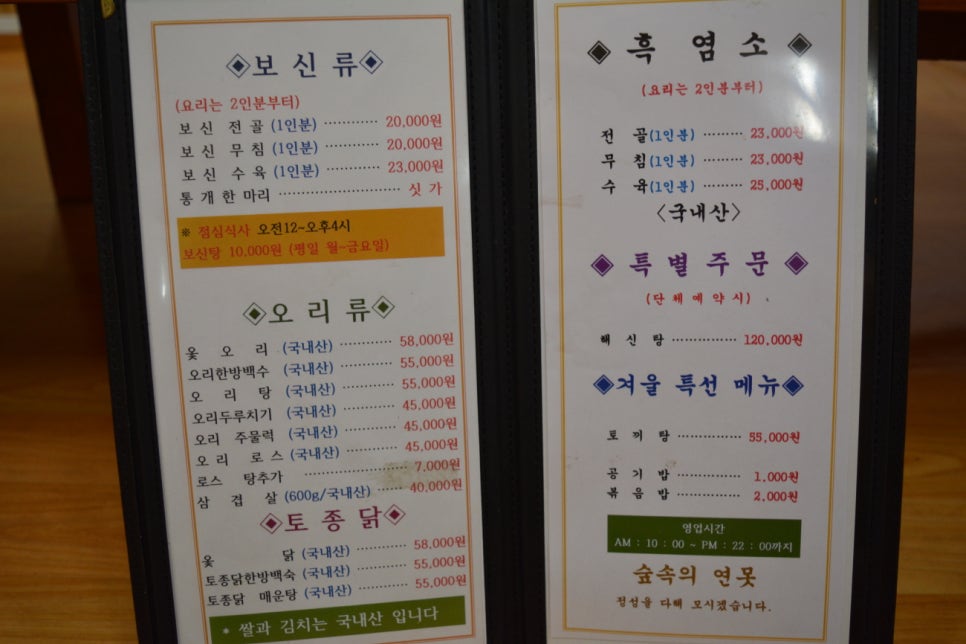 ◈보 신 류◈
(요리는 2인분부터)
보 신 전 골 (1인분) ············ 20,000원
보 신 무 침 (1인분) ············ 20,000원
보 신 수 육 (1인분) ············ 23,000원
통 개 한 마리 ···························· 싯 가
※ 점심식사 오전12~오후4시
보신탕 10,000원 (평일 월~금요일)
◈오 리 류◈
옻 오 리 (국내산) ············ 58,000원
오리한방백수 (국내산) ············ 55,000원
오 리 탕 (국내산) ············ 55,000원
오리두루치기 (국내산) ············ 45,000원
오리 주물럭 (국내산) ············ 45,000원
오 리 로 스 (국내산) ············ 45,000원
로스 탕추가 ···················· 7,000원
삼 겹 살 (600g/국내산) ········ 40,000원
◈토 종 닭◈
옻 닭 (국내산) ············ 58,000원
토종닭한방백숙 (국내산) ············ 55,000원
토종닭 매운탕 (국내산) ············ 55,000원
* 쌀과 김치는 국내산 입니다
◈ 흑 염 소 ◈
(요리는 2인분부터)
전 골(1인분) ········· 23,000원
무 침(1인분) ········· 23,000원
수 육(1인분) ········· 25,000원
〈국내산〉
◈ 특 별 주 문 ◈
(단 체 예 약 시)
해 신 탕 ·············· 120,000원
◈겨울 특선 메뉴◈
토 끼 탕 ··············· 55,000원
공 기 밥 ················ 1,000원
볶 음 밥 ················ 2,000원
영업시간
AM : 10 : 00 ~ PM : 22 : 00까지
숲속의 연못
정성을 다해 모시겠습니다.